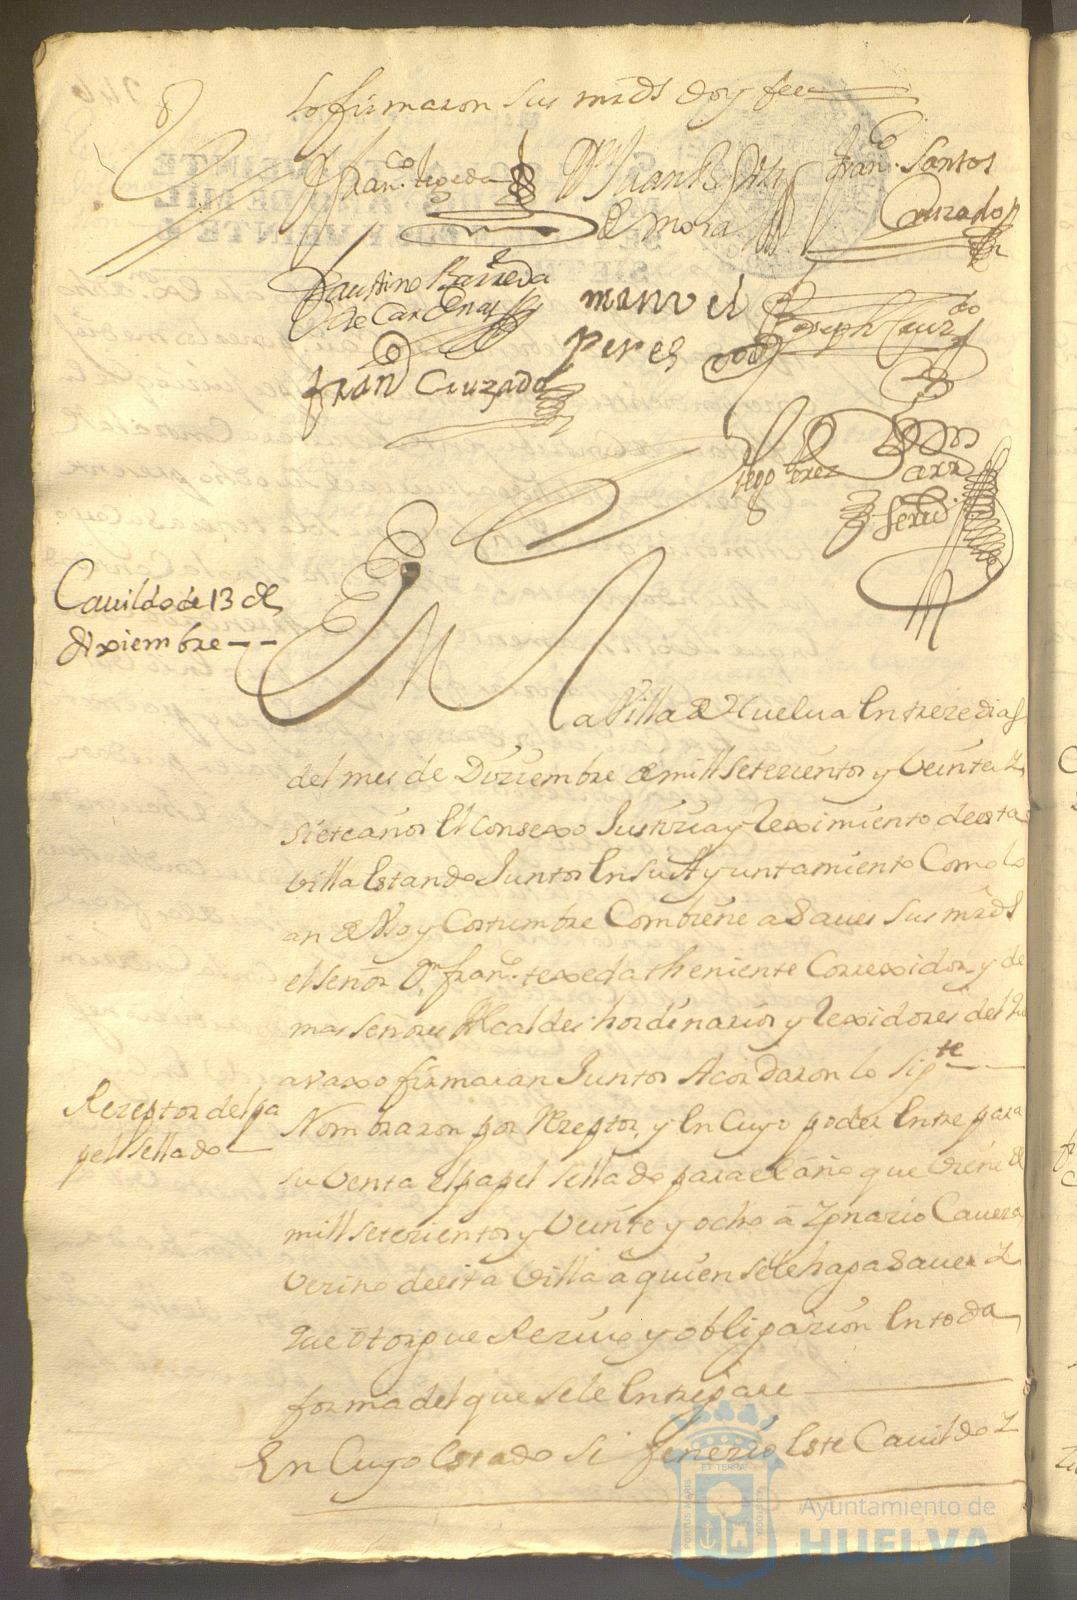 lo firmaron sus mrds doy fee
Franco. texeda
Juan B Ortiz
de Mora
Franco. Santos
Cruzado
Faustino Barreda
de Cardenas
manuel
peres
Joseph Cruzdo
Fran Cruzado
Diego Perez
Cavildo de 13 de
dixiembre--
En la Villa de Huelva En treze dias
del mes de Diziembre de mill setezientos y veinte y
siete años El Consexo Justizia y reximiento de esta
villa Estando Juntos En su Ayuntamiento Como lo
an de Uso y Costumbre Combiene a Saver sus mrds
el señor Dn fran. texeda theniente Correxidor y de
mas señores Alcaldes hordinarios y rexidores del que
avaxo firmaran Juntos Acordaron lo sigte
Rezeptor del pa
pel sellado
Nombraron por Rezeptor, y En Cuyo poder Entre para
su venta el papel sellado para el año que viene de
mill setezientos y veinte y ocho a Ygnazio Cavera
vezino de esta villa a quien se le haga Saver y
que otorgue Rezivo y obligazion En toda
forma del que se le Entregare
En Cuyo Estado se fenezio Este Cavildo y
PORTUS MARIS
ET TERRAE
CUSTODIA
Ayuntamiento de
HUELVA